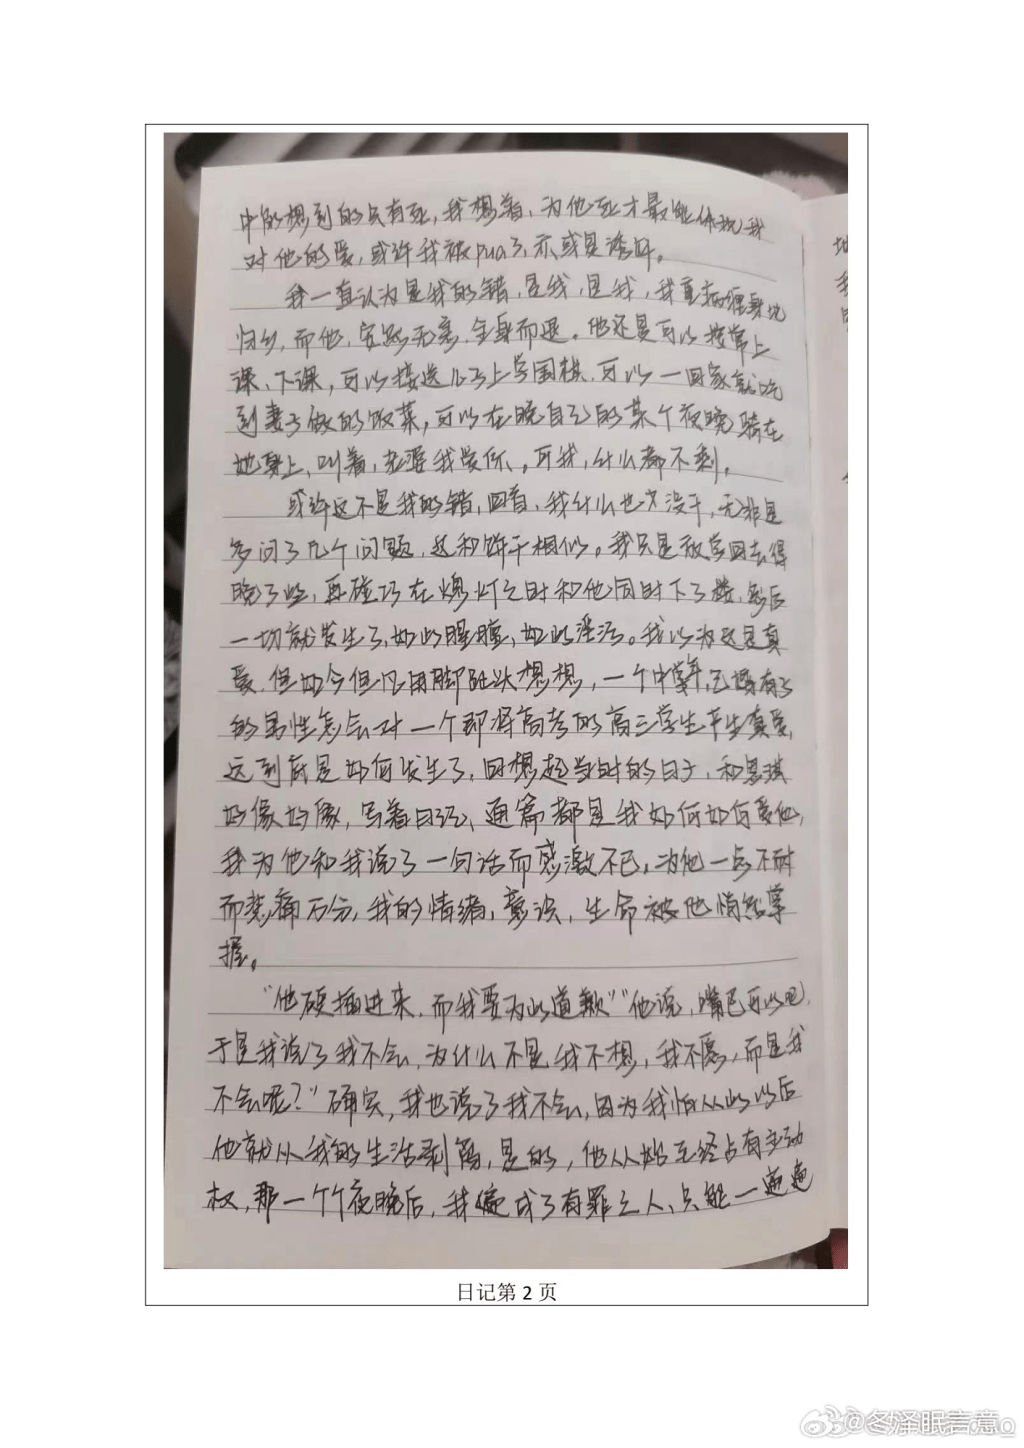 中能想到的只有死，我想着，为他死才最能体现我
对他的爱，或许我被pua了，亦或是诱奸。
我一直认为是我的错，是我，是我，我重病缠身地
归乡，而他，安然无恙，全身而退。他还是可以按常上
课、下课，可以接送儿子上学围棋，可以一回家就吃
到妻子做的饭菜，可以在晚自习的某个夜晚骑在
她身上，叫着，老婆我爱你、。可我，什么都不剩。
或许这不是我的错，回首，我什么也没干，无非是
多问了几个问题，这和饼干相似。我只是放学回去得
晚了些，再碰巧在熄灯之时和他同时下了楼，然后
一切就发生了，如此腥膻，如此淫污。我以为这是真
爱，但如今但凡用脚趾头想想，一个中年，已婚有子
的男性怎会对一个即将高考的高三学生产生真爱，
这到底是如何发生了，回想起当时的日子，和思琪
好像好像，写着日记，通篇都是我如何如何爱他，
我为他和我说了一句话而感激不已，为他一点不耐
而悲痛万分，我的情绪，意识，生命被他悄然掌
握。
“他硬插进来，而我要为此道歉”“他说，嘴巴可以吧，
于是我说了我不会，为什么不是我不想，我不愿，而是我
不会呢？”确实，我也说了我不会，因为我怕从此以后
他就从我的生活剥离，是的，他从始至终占有主动
权，那一个个夜晚后，我变成了有罪之人，只能一遍遍
日记第 2 页
@冬泽眠言意